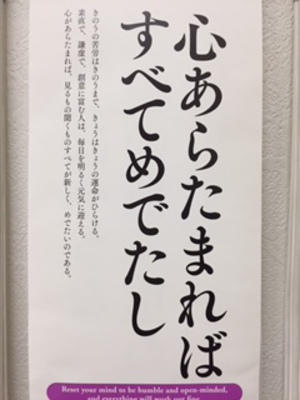 心あらたまれば
すべてめでたし
きのうの苦労はきのうまで、きょうはきょうの運命がひらける。
素直で、謙虚で、創意に富む人は、毎日を明るく元気に迎える。
心があらたまれば、見るもの聞くものすべてが新しく、めでたいのである。
Reset your mind to be humble and open-minded,
and everything will work out fine.